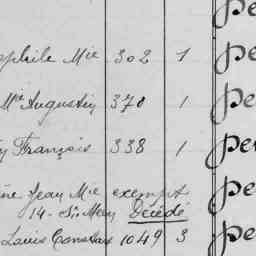 Mie 302 1 pe
Mie Augustin 370 1 pe
François 338 1 per
Jean Mie exempt pe
14 - St Méen Décédé
Louis Constant 1049 3 pe